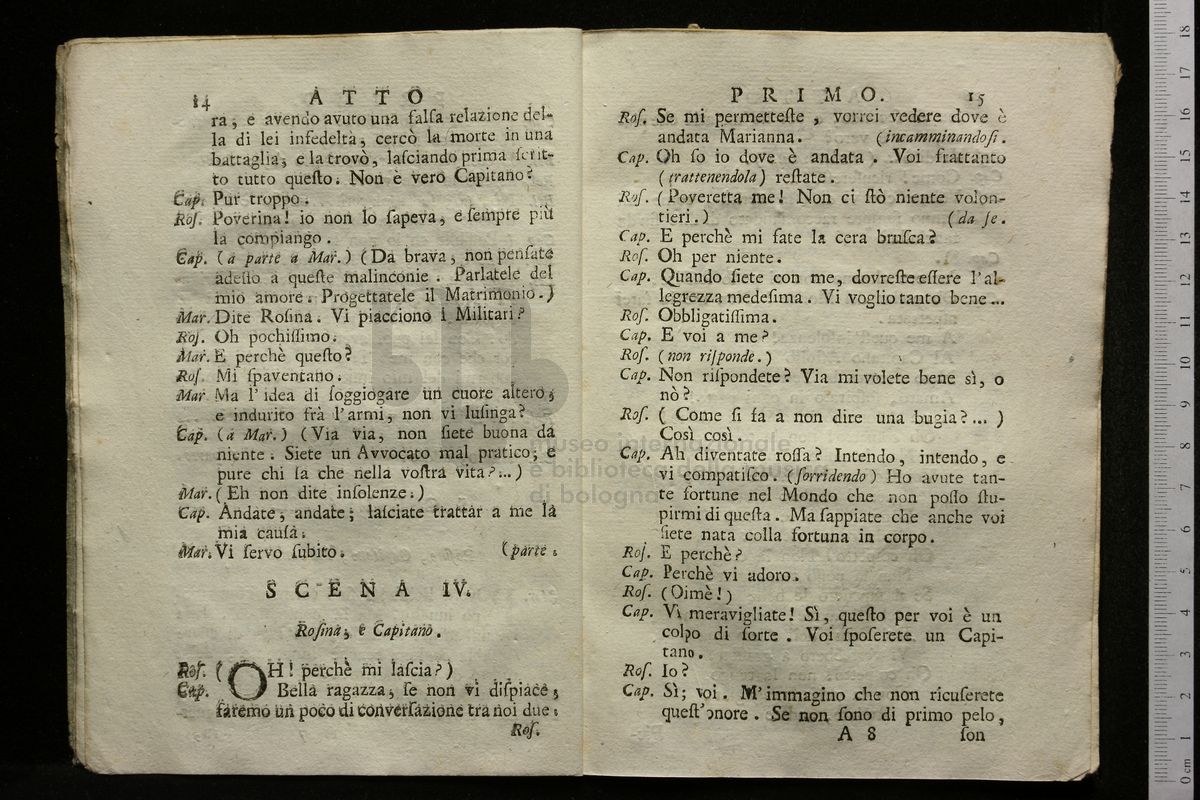 14 ATTO
ra, e avendo avuto una falſa relazione del-
la di lei infedeltà, cercò la morte in una
battaglia, e la trovò, laſciando prima ſcrit-
to tutto queſto. Non è vero Capitano?
Cap. Pur troppo.
Roſ. Poverina! io non lo ſapeva, e ſempre più
la compiango.
Cap. (a parte a Mar.) (Da brava, non penſate
adeſſo a queſte malinconie. Parlatele del
mio amore. Progettatele il Matrimonio.)
Mar. Dite Roſina. Vi piacciono i Militari?
Roſ. Oh pochiſſimo.
Mar. E perchè queſto?
Roſ. Mi ſpaventano.
Mar Ma l'idea di ſoggiogare un cuore altero,
e indurito frà l'armi, non vi luſinga?
Cap. (a Mar.) (Via via, non ſiete buona da
niente. Siete un Avvocato mal pratico; e
pure chi ſa che nella voſtra vita?...)
Mar. (Eh non dite inſolenze.)
Cap. Andate, andate; laſciate trattar a me la
mia cauſa.
Mar. Vi ſervo ſubito. (parte.
SCENA IV.
Roſina, e Capitano.
Roſ. (OH! perchè mi laſcia?)
Cap. Bella ragazza, ſe non vi diſpiace,
faremo un poco di converſazione tra noi due.
Roſ.
PRIMO. 15
Roſ. Se mi permetteſte, vorrei vedere dove è
andata Marianna. (incamminandoſi.
Cap. Oh ſo io dove è andata. Voi frattanto
(trattenendola) reſtate.
Roſ. (Poveretta me! Non ci ſtò niente volon-
tieri.) (da ſe.
Cap. E perchè mi fate la cera bruſca?
Roſ. Oh per niente.
Cap. Quando ſiete con me, dovreſte eſſere l'al-
legrezza medeſima. Vi voglio tanto bene...
Roſ. Obbligatiſſima.
Cap. E voi a me?
Roſ. (non riſponde.)
Cap. Non riſpondete? Via mi volete bene sì, o
nò?
Roſ. (Come ſi fa a non dire una bugia?...)
Così così.
Cap. Ah diventate roſſa? Intendo, intendo, e
vi compatiſco. (ſorridendo) Ho avute tan-
te fortune nel Mondo che non poſſo ſtu-
pirmi di queſta. Ma ſappiate che anche voi
ſiete nata colla fortuna in corpo.
Roſ. E perchè?
Cap. Perchè vi adoro.
Roſ. (Oimè!)
Cap. Vi meravigliate! Sì, queſto per voi è un
colpo di ſorte. Voi ſpoſerete un Capi-
tano.
Roſ. Io?
Cap. Sì; voi. M'immagino che non ricuſerete
queſt'onore. Se non ſono di primo pelo,
A 8 ſon
museo internazionale
e biblioteca della musica
di bologna
0 cm 1 2 3 4 5 6 7 8 9 10 11 12 13 14 15 16 17 18